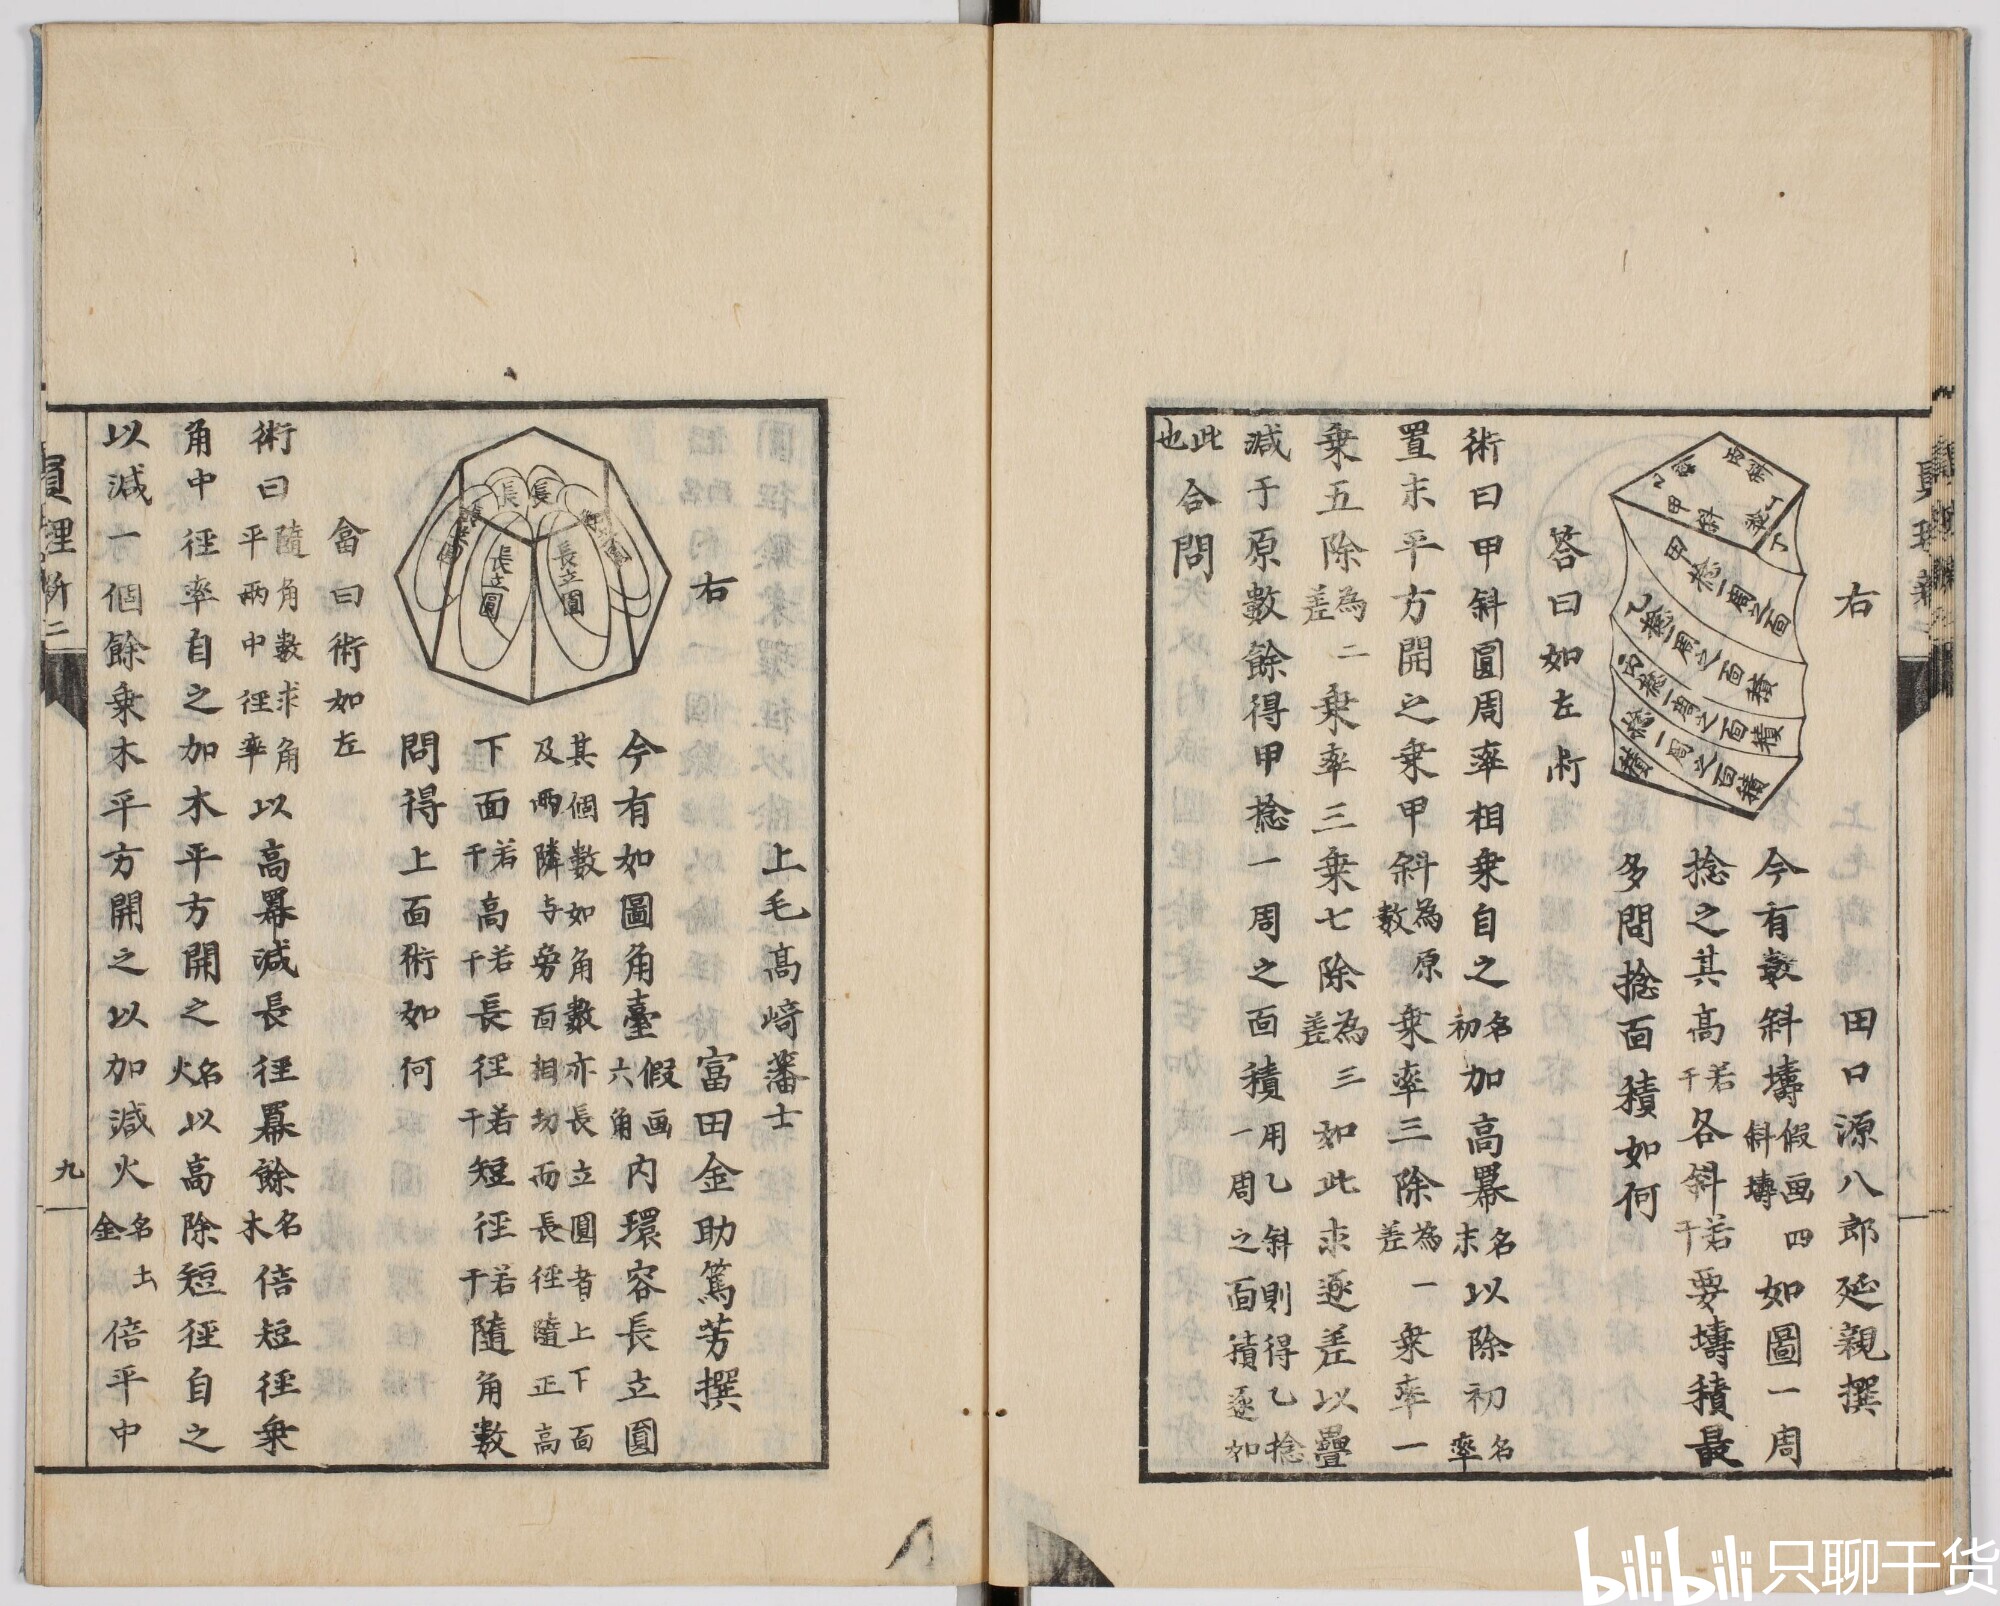 右
田口源八郎延親撰
今有數斜墻假画四斜墻如圖一周
捻之其高若干各斜若干要墻積最
多問捻面積如何
甲斜
乙斜
丙斜
丁斜
甲捻一周之面
乙捻一周之面積
丙捻一周之面積
捻一周之面積
答曰如左術
術曰甲斜圓周率相乘自之名初加高冪名末以除初名率
置末平方開之乘甲斜為原數乘率三除為一差乘率一
乘五除為二差二乘率三乘七除為三差如此求逐差以疊
減于原數餘得甲捻一周之面積用乙斜則得乙捻一周之面積逐如
此也合問
上毛高﨑藩士
富田金助篤芳撰
右
今有如圖角臺假画六角內環容長立圓
其個數如角數亦長立圓者上下面
及兩隣与旁面相切而長徑隨正高
下面若干高若干長徑若干短徑若干隨角數
問得上面術如何
長
長
長立圓
長立圓
答曰術如左
術曰隨角數求角平兩中徑率以高冪減長徑冪餘名木倍短徑乘
角中徑率自之加木平方開之名火以高除短徑自之
以減一個餘乘木平方開之以加減火名土金倍平中
九
bilibili 只聊干货